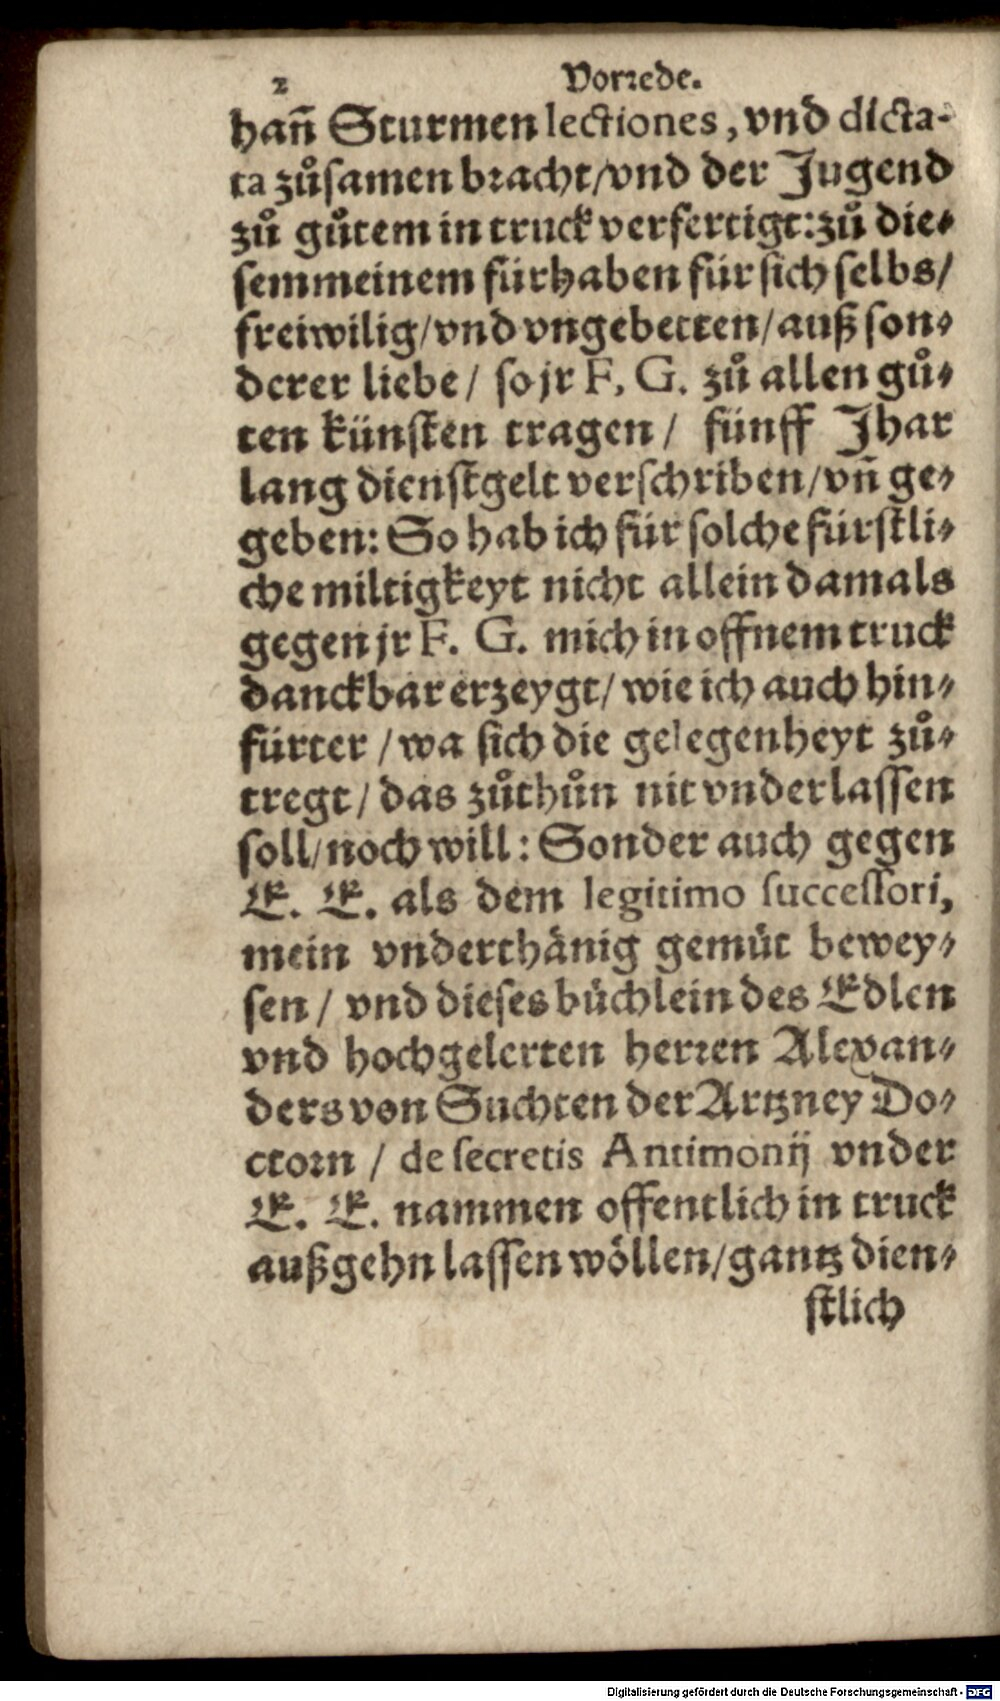 2 Vorrede.
hañ Sturmen lectiones, vnd dicta-
ta zůsamen bracht/vnd der Jugend
zů gůtem in truck verfertigt: zů die-
sem meinem fürhaben für sich selbs/
freiwilig/vnd vngebetten/auß son-
derer liebe/ so jr F. G. zů allen gů-
ten künsten tragen/ fünff Jhar
lang dienstgelt verschriben/vñ ge-
geben: So hab ich für solche fürstli-
che miltigkeyt nicht allein damals
gegen jr F. G. mich in offnem truck
danckbar erzeygt/ wie ich auch hin-
fürter /wa sich die gelegenheyt zů-
tregt/ das zůthůn nit vnderlassen
soll/noch will: Sonder auch gegen
E. E. als dem legitimo successori,
mein vnderthänig gemüt bewey-
sen/ vnd dieses büchlein des Edlen
vnd hochgelerten herren Alexan-
ders von Suchten der Artzney Do-
ctorn / de secretis Antimonij vnder
E. E. nammen offentlich in truck
außgehn lassen wöllen/gantz dien-
stlich
Digitalisierung gefördert durch die Deutsche Forschungsgemeinschaft - DFG